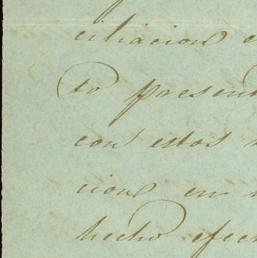 ciliacion
to presen
con estos
cions en
hecho efec